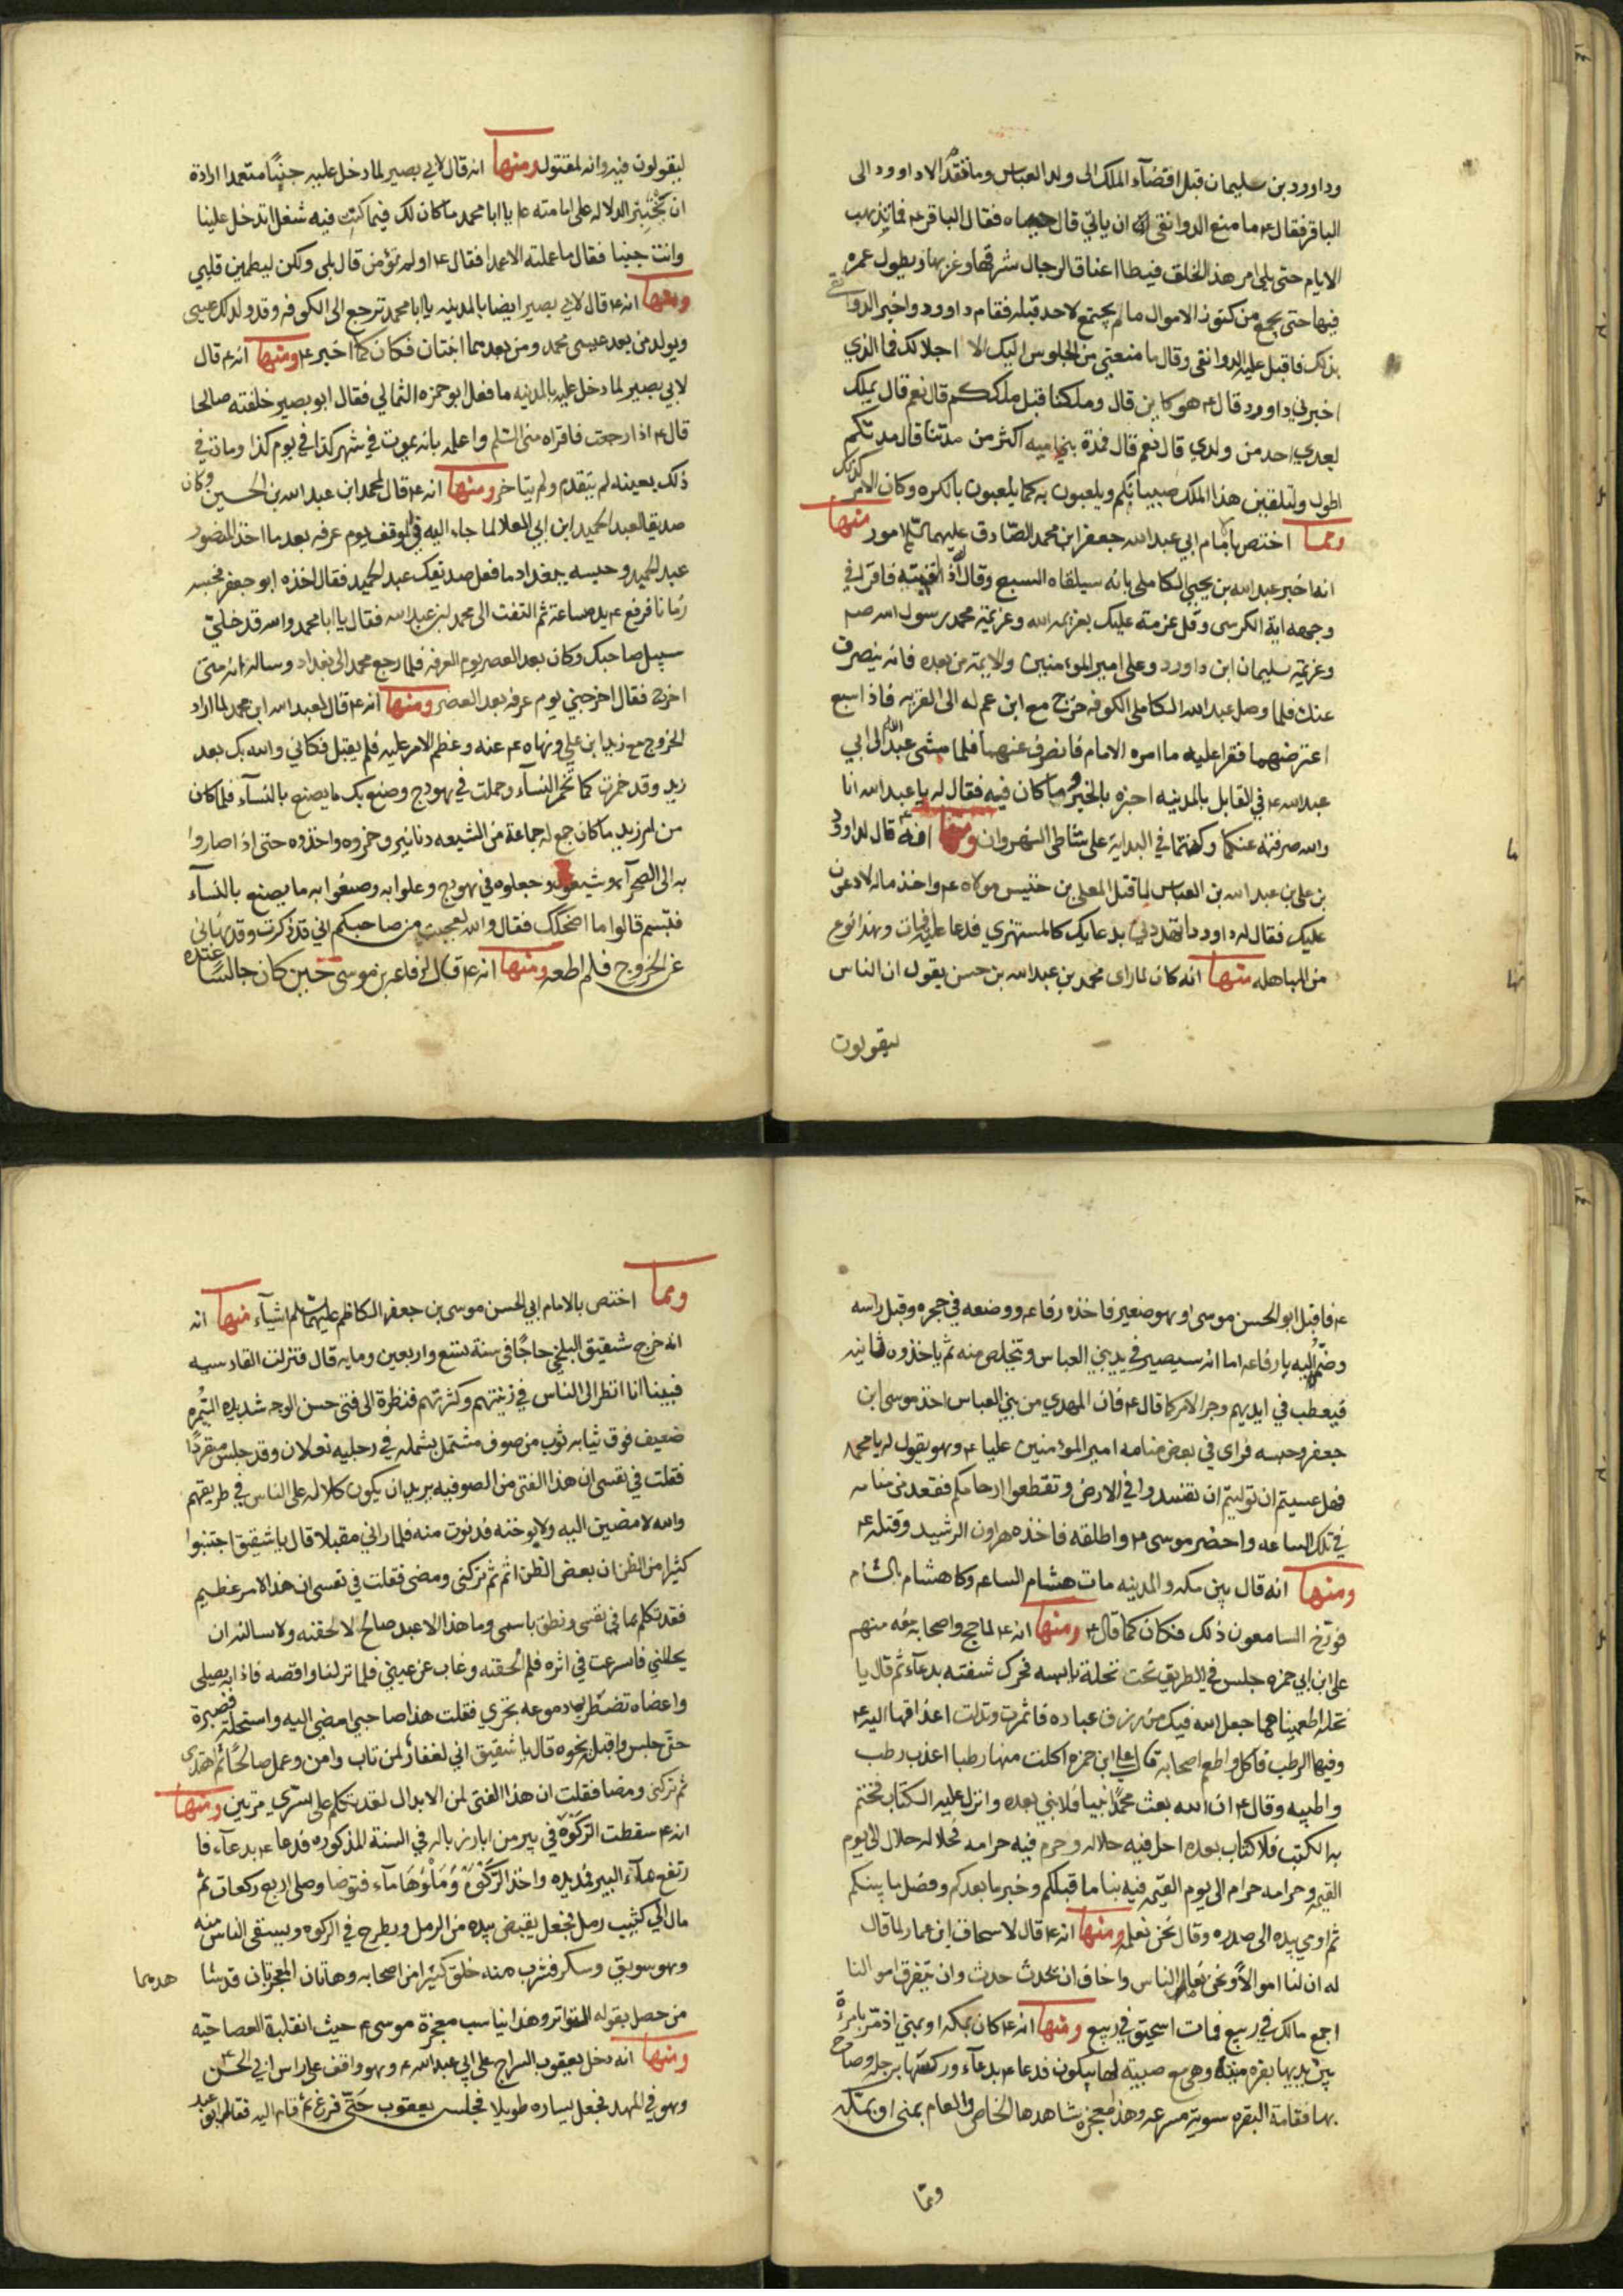 وداوود بن سليمان قبل اقضآء الملك الى ولد العباس وما فقد الا داوود الى
الباقر فقال ع ما منع الدوانقى ان ياتى قال جفاه فقال الباقر ع فما تذهب
الايام حتى يلى امر هذا الخلق فيطا اعناق الرجال شرقها وغربها ويطول عمره
فيها حتى يجمع من كنوز الاموال ما لم يجتمع لاحد قبله فقام داوود واخبر الدوانقى
بذلك فاقبل عليه الدوانقى وقال ما منعنى من الجلوس اليك الا اجلالك فما الذي
اخبرني داوود قال ع هو كاين قال وملكنا قبل ملككم قال نعم قال يملك
بعدي احد من ولدي قال نعم قال فمدة بني اميه اكثر من مدتنا قال مدتكم
اطول وليتلقين هذا الملك صبيانكم ويلعبون به كما يلعبون بالكره وكان الامر كذلك
ومما اختص بامام ابي عبد الله جعفر ابن محمد الصادق عليهما السلم امور منها
انه اخبر عبد الله بن يحيى الكاملى بانه سيلقاه السبع وقال اذا لقيته فاقرا في
وجهه اية الكرسى وقل عزمة عليك بعزيمه الله وعزيمة محمد رسول الله صم
وعزيمة سليمان ابن داوود وعلى امير المومنين والايمة من بعده فانه ينصرف
عنك فلما وصل عبد الله الكاملى الكوفه خرج مع ابن عم له الى القريه فاذا سبع
اعترضهما فقرا عليه ما امره الامام فانصرف عنهما فلما مشى عبد الله الى ابي
عبد الله ع في القابل بالمدينه اخبره بالخبر وما كان فيه فقال له يا عبد الله انا
والله صرفته عنكما وكنتما في البداية على شاطى النهروان ومنها انه ع قال لداوود
بن على بن عبد الله بن العباس لما قتل المعلى بن خنيس مولاه ع واخذ ماله لادعون
عليك فقال له داوود ما تهددني بدعايك كالمستهزي فدعا عليه فمات وهذا نوع
من المباهله منها انه كان لما راى محمد بن عبد الله بن حسن يقول ان الناس
ليقولون
ليقولون فيه وانه لمقتول ومنها انه قال لابي بصير لما دخل عليه جنبًا متعمدا ارادة
ان يختبر الدلاله على امامته ع يا ابا محمد ما كان لك فيما كنت فيه شغل اتدخل علينا
وانت جنبا فقال ما عملته الا عمدا فقال ع اولم تؤمن قال بلى ولكن ليطمين قلبي
ومنها انه ع قال لابي بصير ايضا بالمدينه يا ابا محمد ترجع الى الكوفه وقد ولد لك عيسى
ويولد من بعد عيسى محمد ومن بعدهما ابنتان فكان كما اخبر ع ومنها انه ع قال
لابي بصير لما دخل عليه بالمدينه ما فعل ابو حمزه الثمالي فقال ابو بصير خلفته صالحا
قال ع اذا رجعت فاقراه منى السلم واعلمه بانه يموت في شهر كذا في يوم كذا ومات في
ذلك بعينه لم يتقدم ولم يتاخر ومنها انه ع قال لمحمد ابن عبد الله بن الحسين وكان
صديقا لعبد الحميد ابن ابي العلا لما جاء اليه في الموقف يوم عرفه بعد ما اخذ المنصور
عبد الحميد وحبسه ببغداد ما فعل صديقك عبد الحميد فقال اخذه ابو جعفر فحبسه
زمانا فرفع ع يده ساعة ثم التفت الى محمد ابن عبد الله فقال يا ابا محمد والله قد خلى
سبيل صاحبك وكان بعد العصر يوم العرفه فلما رجع محمد الى بغداد وساله انه متى
اخرج فقال اخرجنى يوم عرفه بعد العصر ومنها انه ع قال لعبد الله ابن محمد لما اراد
الخروج مع زيد ابن علي ونهاه ع عنه وعظم الامر عليه فلم يقبل فكاني والله بك بعد
زيد وقد خمرت كما تخمر النسآء وحملت في هودج وصنع بك ما يصنع بالنسآء فلما كان
من امر زيد ما كان جمع له جماعة من الشيعه دنانير وخمروه واخذوه حتى اذا صاروا
به الى الصحرآء وشيعوه وجعلوه في هودج وعلوا به وصنعوا به ما يصنع بالنسآء
فتبسم قالوا ما اضحكك فقال والله تعجبت من صاحبكم اني قد ذكرت وقد نهاني
عن الخروج فلم اطعه ومنها انه ع قال لرفاعه بن موسى حين كان جالسًا عنده
ع فاقبل ابو الحسن موسى او هو صغير فاخذه رفاعه ووضعه في حجره وقبل راسه
وضمه اليه يا رفاعه اما انه سيصير في يد بني العباس ويتخلص منه ثم ياخذوه ثانيه
فيعطب في ايديهم وجرا الامر كما قال ع فان المهدي من بني العباس اخذ موسى ابن
جعفر وحبسه فراى في بعض منامه امير المؤمنين عليا ع وهو يقول له يا محمد
فهل عسيتم ان توليتم ان تفسدوا في الارض وتقطعوا ارحامكم فقعد من منامه
في تلك الساعه واحضر موسى ع واطلقه فاخذه هارون الرشيد وقتله ع
ومنها انه قال بين مكه والمدينه مات هشام الساعه وكا هشام بالشام
فورّخ السامعون ذلك فكان كما قال ع ومنها انه ع لما حج واصحابه معه منهم
على ابن ابي حمزه جلس في الطريق تحت نخلة يابسه فحرك شفته بدعاء ثم قال يا
نخله اطعمينا مما جعل الله فيك من رزق عباده فاثمرت وتدلت اعذاقها اليه ع
وفيها الرطب فاكل واطعم اصحابه قال على ابن حمزه اكلت منها رطبا اعذب رطب
واطيبه وقال ع ان الله بعث محمدًا نبيا فلا نبى بعده وانزل عليه الكتاب فختم
به الكتب فلا كتاب بعده احل فيه حلاله وحرم فيه حرامه فحلاله حلال الى يوم
القيمه وحرامه حرام الى يوم القيمه فيه نبا ما قبلكم وخبر ما بعدكم وفضل ما بينكم
ثم اومي بيده الى صدره وقال نحن نعلمه ومنها انه ع قال لاسحاق ابن عمار لما قال
له ان لنا اموالاً ونحن نعامل الناس واخاف ان يحدث حدث وان يتفرق اموالنا
اجمع مالك في ربيع فمات اسحق في ربيع ومنها انه ع كان بمكه او بمنى اذ مرّ بامرءة
بين يديها بقره ميته وهى مع صبيه لها يبكون فدعا ع بدعآء وركضها برجله وصاح
بها فقامة البقره سوية مسرعه وهذه معجزه شاهدها الخاص والعام بمنى او بمكه
ومما
ومما اختص بالامام ابي الحسن موسى بن جعفر الكاظم عليهما السلم اشيآء منها انه
انه خرج شقيق البلخي حاجًا في سنة تسع واربعين ومايه قال فنزلت القادسيه
فبينا انا انظر الى الناس في زينتهم وكثرتهم فنظرة الى فتى حسن الوجه شديده السُمره
ضعيف فوق ثيابه ثوب من صوف مشتمل بشمله في رجليه نعلان وقد جلس منفردًا
فقلت في نفسى ان هذا الفتى من الصوفيه يريد ان يكون كلا له على الناس في طريقهم
والله لامضين اليه ولاوبخنه فدنوت منه فلما راني مقبلا قال يا شقيق اجتنبوا
كثيرا من الظن ان بعض الظن اثم ثم تركنى ومضى فقلت في نفسى ان هذا الامر عظيم
فقد تكلم بما في نفسى ونطق باسمى وما هذا الا عبد صالح لالحقنه ولاسالنه ان
يحللنى فاسرعت في اثره فلم الحقنه وغاب عن عينى فلما نزلنا واقصه فاذا به يصلى
واعضاه تضطرب ودموعه تجري فقلت هذا صاحبى امضى اليه واستحله فصبرة
حتى جلس واقبل نحوه قال يا شقيق اني لغفار لمن تاب وامن وعمل صالحًا ثم اهتدى
ثم تركنى ومضا فقلت ان هذا الفتى لمن الابدال لقد تكلم على سرّي مرتين ومنها
انه ع سقطت الركوة في بير من ابار زباله في السنة المذكوره فدعا ع بدعآء فا
رتفع مآء البير فمد يده واخذ الركوة وملؤها مآء فتوضا وصلى اربع ركعات ثم
مال الى كثيب رمل فجعل يقبض بيده من الرمل ويطرح في الركوه ويسقى الناس منه
وهو سويق وسكر فشرب منه خلق كثيرا من اصحابه وهاتان المعجزتان قد شا هدهما
من حصل بقوله التواتر وهذا يناسب معجزة موسى ع حيث انقلبة العصا حيّه
ومنها انه دخل يعقوب السراج على ابي عبد الله ع وهو واقف على راس ابي الحسن ع
وهو في المهد فجعل يساره طويلا فجلس يعقوب حتّى فرغ ثم قام اليه فقال ابو عبد